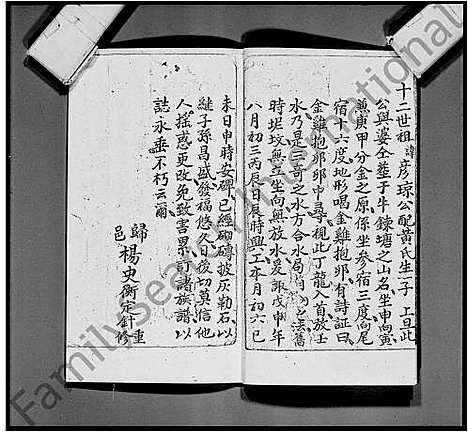 十二世祖諱彥琼公配黃氏生一子 上旦此
公與婆仝塟于牛鍊塘之山名坐申向寅
兼庚甲分金之原係坐參宿三度向尾
宿十六度地形喝金雞抱卵有詩証曰
金雞抱卵卯中尋視此丁龍入首放壬
水乃是三奇之水方合水局 之法舊
時坭坟無立坐向與放水爰諏戊申年
八月初三丙辰日辰時興工本月初六己
未日申時安碑已經砌磚披灰勒石以
継子孫昌盛發福悠久日後切莫信他
人搖惑更改免致害累 訂諸族譜以
誌永垂不朽云爾
歸邑楊史衡定針重修
FamilySearch International